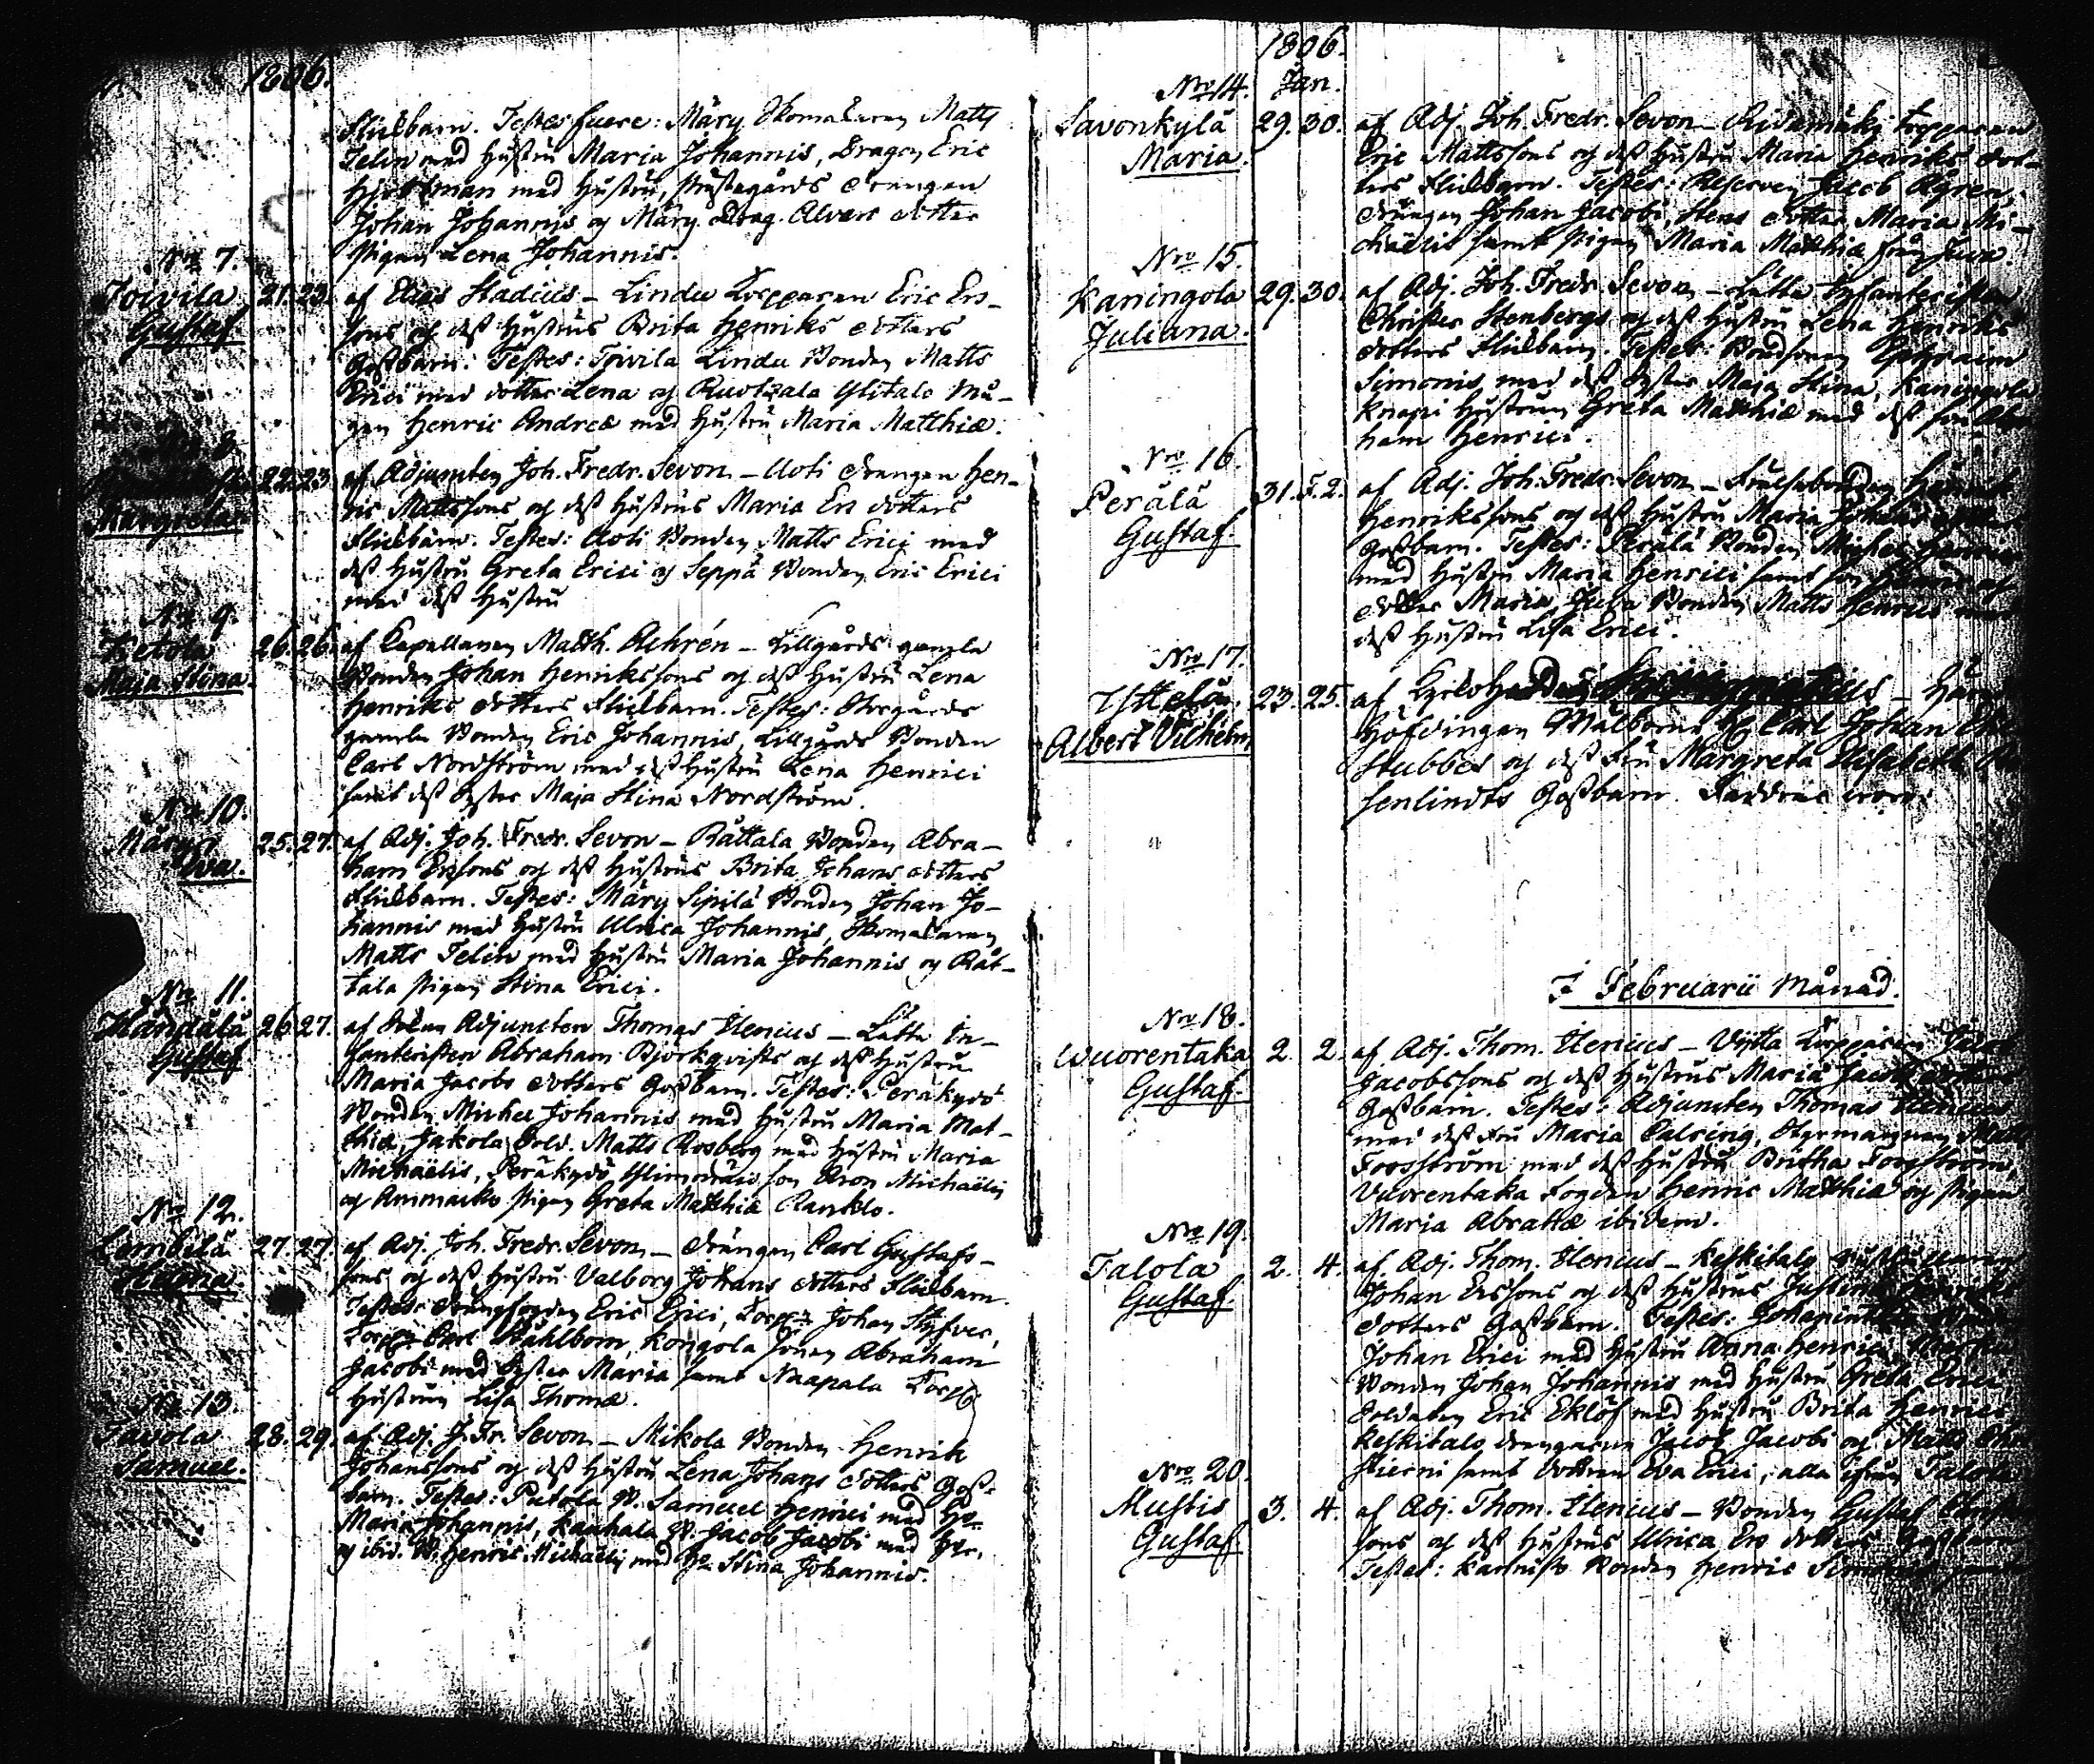 1806.
flickbarn. Testes fuere: Märy Skomakaren Matts
Felin med hustru Maria Johannis, Dragon Eric
Hjortman med hustru, Prästegårds drängen
Johan Johannis och Märy Drag. Alvars dotter
Pigan Lena Johannis.
Nro 7.
Toivila 21. 23. af Elias Stadius – Lindu Torpparen Eric Ers-
Gustaf. sons och dess hustrus Brita Henriks dotters
Gossbarn: Testes: Toivila Lindu Bonden Matts
Erici med dotter Lena och Ruotzala Ylitalo Må-
gen Henric Andreæ med hustru Maria Matthiæ.
No 8.
22. 23. af Adjuncten Joh. Fredr. Sevon – Uoti drängen Hen-
Margreta ric Mattssons och dess hustrus Maria Ers dotters
flickbarn. Testes: Uoti Bonden Matts Erici med
dess hustru Greta Erici och Seppä Bonden Eric Erici
med dess hustru
No 9.
Ketola 26. 26. af Capellanen Matth. Achrén – Lillgårds gamla
Maja Stina. Bonden Johan Henrikssons och dess hustru Lena
Henriks dotters flickbarn. Testes:
gamla Bonden Eric Johannis, Lillgårds Bonden
Carl Nordström med dess hustru Lena Henrici
samt dess syster Maja Stina Nordström.
No 10.
Märy 25. 27. af Adj. Joh. Fredr. Sevon – Råttala Bonden Abra-
Eva. ham Erssons och dess hustrus Brita Johans dotters
flickbarn. Testes: Märy Sipilä Bonden Johan Jo-
hannis med hustru Ulrica Johannis, Skomakaren
Matts Felin med hustru Maria Johannis och Råt-
tala pigan Stina Erici.
No 11.
Handälä 26. 27. af Adjuncten Thomas Ilenius – Lätta In-
Gustaf fanteristen Abraham Björkqvists och dess hustru
Maria Jacobs dotters Gossbarn. Testes: Peräkydö
Bonden Michel Johannis med hustru Maria Mat-
thiæ, Jakola Sold. Matts Rosberg med hustru Maria
Michaëlis, Peräkydö son Aron Michaëlis
och Ammaiko pigan Greta Matthiæ Ranklo.
No 12.
Lembilä 27. 27. af Adj. Joh. Fredr. Sevon – drängen Carl Gustafs-
Helena. sons och dess hustru Valborg Johans dotters flickbarn.
Testes: drängfogden Eric Erici, Torpp. Johan Styfver,
Torpp. Carl Ståhlbom, Kongola sonen Abraham
Jacobi med syster Maria samt Naapala Torpp.
hustrun Lisa Thomæ.
No 13.
Tavola 28. 29. af Adj. J. Fr. Sevon – Mikola Bonden Henrik
Samuel. Johanssons och dess hustru Lena Johans dotters Goss-
barn. Testes: Putola B. Samuel Henrici med Ho
Maria Johannis, Kauhala B. Jacob Jacobi med
och ibid. B. Henric Michaëlis med Ho Stina Johannis.
1806.
Nro 14. Jan.
Savonkylä 29. 30. af Adj. Joh. Fredr. Sevon – Ridamäki torpparen
Maria. Eric Mattssons och dess hustru Maria Henriks dot-
ters flickbarn. Testes: Reserven Jacob Ågren,
drängen Johan Jacobi, Stens dotter Maria Mi-
chaëlis samt pigan Maria Matthiæ från
Nro 15.
Kaningola 29. 30. af Adj. Joh. Fredr. Sevon – Lätta Infanteristen
Juliana. Christer Stenbergs och dess hustru Lena Henriks
dotters flickbarn. Testes: Bondsonen Ephraim
Simonis med dess syster Maja Stina, Kaningola
Knapi hustrun Greta Matthiæ med dess son Abra
ham Henrici.
Nro 16.
Perälä 31. F. 2. af Adj. Joh. Fredr. Sevon –
Gustaf. Henrikssons och dess hustru Maria
Gossbarn. Testes: Perälä Bonden Michel
med hustru Maria Henrici samt son
dotter Maria, Bonden Matts Henrici med
dess hustru Lisa Erici.
Nro 17.
23. 25. af Kyrkoherden
Albert Vilhelm Höfdingen Wälborne H. Carl Johan
Stubbes och dess Fru Margreta Elisabeth
senlindts Gossbarn. Faddrar woro:
I Februarii Månad.
Nro 18.
Wuorentaka 2. 2. af Adj. Thom. Ilenius – Vijtta Torpparen Jacob
Gustaf. Jacobssons och dess hustrus Maria Jacobs
Gossbarn. Testes: Adjuncten Thomas Ilenius
med dess Fru Maria Calenig, Styrmannen
Forsström med dess hustru Britha Forsström,
Vuorentaka fogden Henric Matthiæ och pigan
Maria Abrahæ ibidem.
Nro 19
Talola 2. 4. af Adj. Thom. Ilenius – Keskitalo
Gustaf. Johan Erssons och dess hustrus Justina
dotters Gossbarn. Testes:
Johan Erici med hustru Anna Henrici,
Bonden Johan Johannis med hustru Greta Erici,
Soldaten Eric Eklöf med hustru Brita Henrici
Keskitalo drängarne Jacob Jacobi och Matts
samt dottren Eva Erici, alla ifrån Talola
Nro 20.
Mustis 3. 4. af Adj. Thom. Ilenius – Bonden Gustaf
Gustaf. sons och dess hustrus Ulrica Ers dotters Gossbarn
Testes: Kannisto Bonden Henric